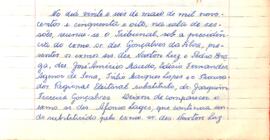 Ao dia vinte e seis de maio de mil nove
centos e cinquenta e oito, nas sala de ses
sões, reuniu-se o Tribunal, sob a presidên
cia do exmo sr. des Gonçalves da Silva, pre
sentes os exmos srs. des Newton Luz e Pedro Bra
ga, drs. José Américo Macedo, Edésio Fernandes
e Túlio Marques Lopes e o Procura
dor Regional Eleitoral substituto, dr. Joaquim
Ferreira Gonçalves. Deixou de comparecer o
exmo sr des Afonso Lages, que continua sen
do substituído pelo exmo sr. des Newton Luz